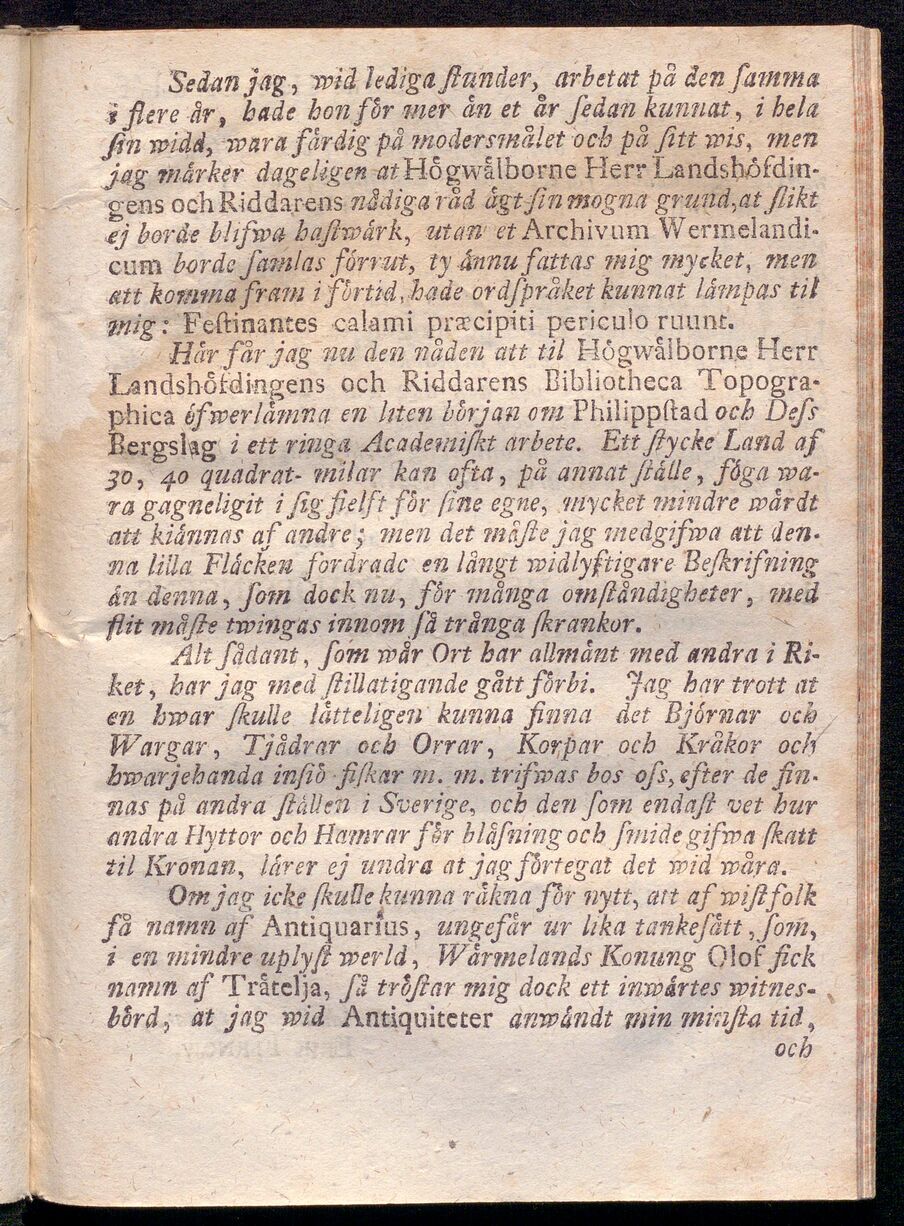 Sedan jag, wid lediga ſtunder, arbetat på den ſamma
i flere år, hade hon för mer än et år ſedan kunnat, i hela
ſin widd, wara färdig på modersmålet och på ſitt wis, men
jag märker dageligen at Högwälborne Herr Landshöfdin-
gens och Riddarens nådiga råd ägt ſin mogna grund, at ſlikt
ej borde blifwa haſtwärk, utan et Archivum Wermelandi-
cum borde ſamlas förrut, ty ännu fattas mig mycket, men
att komma fram i förtid, hade ordſpråket kunnat lämpas til
mig: Feſtinantes calami præcipiti periculo ruunt.
Här får jag nu den nåden att til Högwälborne Herr
Landshöfdingens och Riddarens Bibliotheca Topogra-
phica öfwerlämna en liten början om Philippſtad och Deſs
Bergslag i ett ringa Academiſkt arbete. Ett ſtycke Land af
30, 40 quadrat- milar kan ofta, på annat ſtälle, föga wa-
ra gagneligit i ſig ſielft för ſine egne, mycket mindre wärdt
att kiännas af andre; men det måſte jag medgifwa att den-
na lilla Fläcken fordrade en långt widlyftigare Beſkrifning
än denna, ſom dock nu, för många omſtändigheter, med
flit måſte twingas innom ſå trånga ſkrankor.
Alt ſådant, ſom wår Ort har allmänt med andra i Ri-
ket, har jag med ſtillatigande gått förbi. Jag har trott at
en hwar ſkulle lätteligen kunna finna det Björnar och
Wargar, Tjädrar och Orrar, Korpar och Kråkor och
hwarjehanda inſiö-fiſkar m. m. trifwas hos oſs, efter de fin-
nas på andra ſtällen i Sverige, och den ſom endaſt vet hur
andra Hyttor och Hamrar för blåſning och ſmide gifwa ſkatt
til Kronan, lärer ej undra at jag förtegat det wid wåra.
Om jag icke ſkulle kunna räkna för nytt, att af wiſt folk
få namn af Antiquarius, ungefär ur lika tankeſätt, ſom,
i en mindre uplyſt werld, Wärmelands Konung Olof fick
namn af Trätelja, ſå tröſtar mig dock ett inwärtes witnes-
börd, at jag wid Antiquiteter anwändt min minſta tid,
och